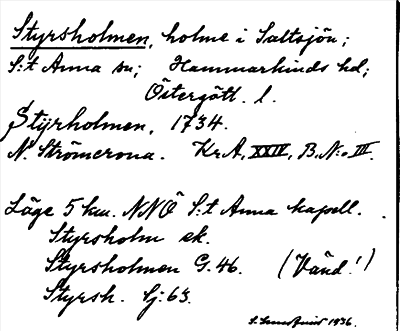 Styrsholmen, holme i Saltsjön;
S:t Anna sn; Hammarkinds hd;
Östergötl. l.
Stÿrholmen, 1734.
N. Strömerona. Kr.A, XXIV, B. N:o III.
Läge 5 km. NNÖ S:t Anna kapell.
Styrsholm ek.
Styrsholmen G. 46. (Vänd!)
Styrsh. Gj: 63.
1936.